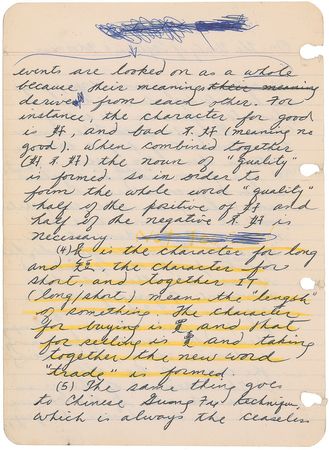 events are looked on as a whole
because their meanings their meaning
derive from each other. For
instance, the character for good
is 好, and bad 不好 (meaning no
good). when combined together
(好不好) the noun of "quality"
is formed. so in order to
form the whole word "quality"
half of the positive of 好 and
half of the negative 不好 is
necessary
(4) 長 is the character for long
and 短, the character for
short, and together IT
(long/short) means the "length"
of something. The character
for buying is 買 and that
for selling is 賣 and taking
together the new word
"trade" is formed.
(5) The same thing goes
to Chinese Gung Fu technique,
which is always the ceaseless